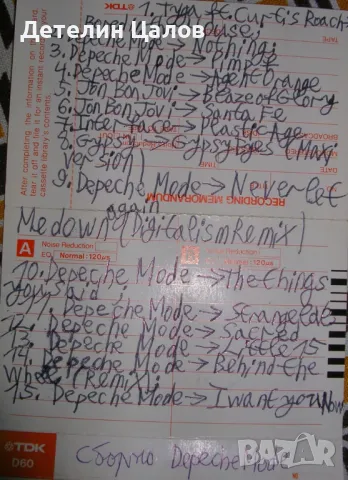 Детелин Цалов
TDK
1. Tyga ft. Curtis Roach→
Bored in the house;
3. Depeche Mode→Nothing;
3. Depeche Mode→Pimpf
4. Depeche Mode→Agent Orange
5. Jon Bon Jovi→Blaze of Glory
6. Jon Bon Jovi→Santa Fe
7. Interface→Plastic Age
8. Gypsy→Gypsy eyes (Maxi
version)
9. Depeche Mode→Never let
again
Me down (Digitalism Remix)
After completing the information on the card,
tear it off and file it for an instant recording of your
cassette library's contents.
RECORDING MEMORANDUM
A
Noise Reduction
EQ Normal: 120µs
10. Depeche Mode→the things
you said;
Depeche Mode→Strangelove
Depeche Mode→Sacred
13. Depeche Mode→Little 15
14. Depeche Mode→Behind the
Wheel (Remix);
15. Depeche Mode→I want you Now
TDK
D60
Сборно Depeche Mode
bazar.bg